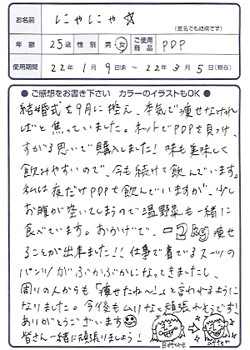 お名前 にゃにゃ☆
(匿名でも結構です)
年齢 25歳 性別 男・女 ご使用商品 PDP
使用期間 22年 1月 9日 ～ 22年 3月 5日(現在)
●ご感想をお書き下さい カラーのイラストもOK●
結婚式を9月に控え、本気で痩せなけれ
ばと焦っていました。ネットでPDPを見つけ、
すがる思いで購入しました!味も美味しく
飲みやすいので、今も続けて飲んでいます。
私は夜だけPDPを飲んでいますが、少し
お腹が空いてしまうので温野菜も一緒に
食べています。おかげで、
痩せ
ることが出来ました!!仕事で着てるスーツの
パンツがぶかぶかになってきましたし、
周りの人からも「痩せたね〜!」と言われるように
なりました。今後もムリなく頑張れそうです!
ありがとうございます
皆さん一緒に頑張りましょう!
Before
After